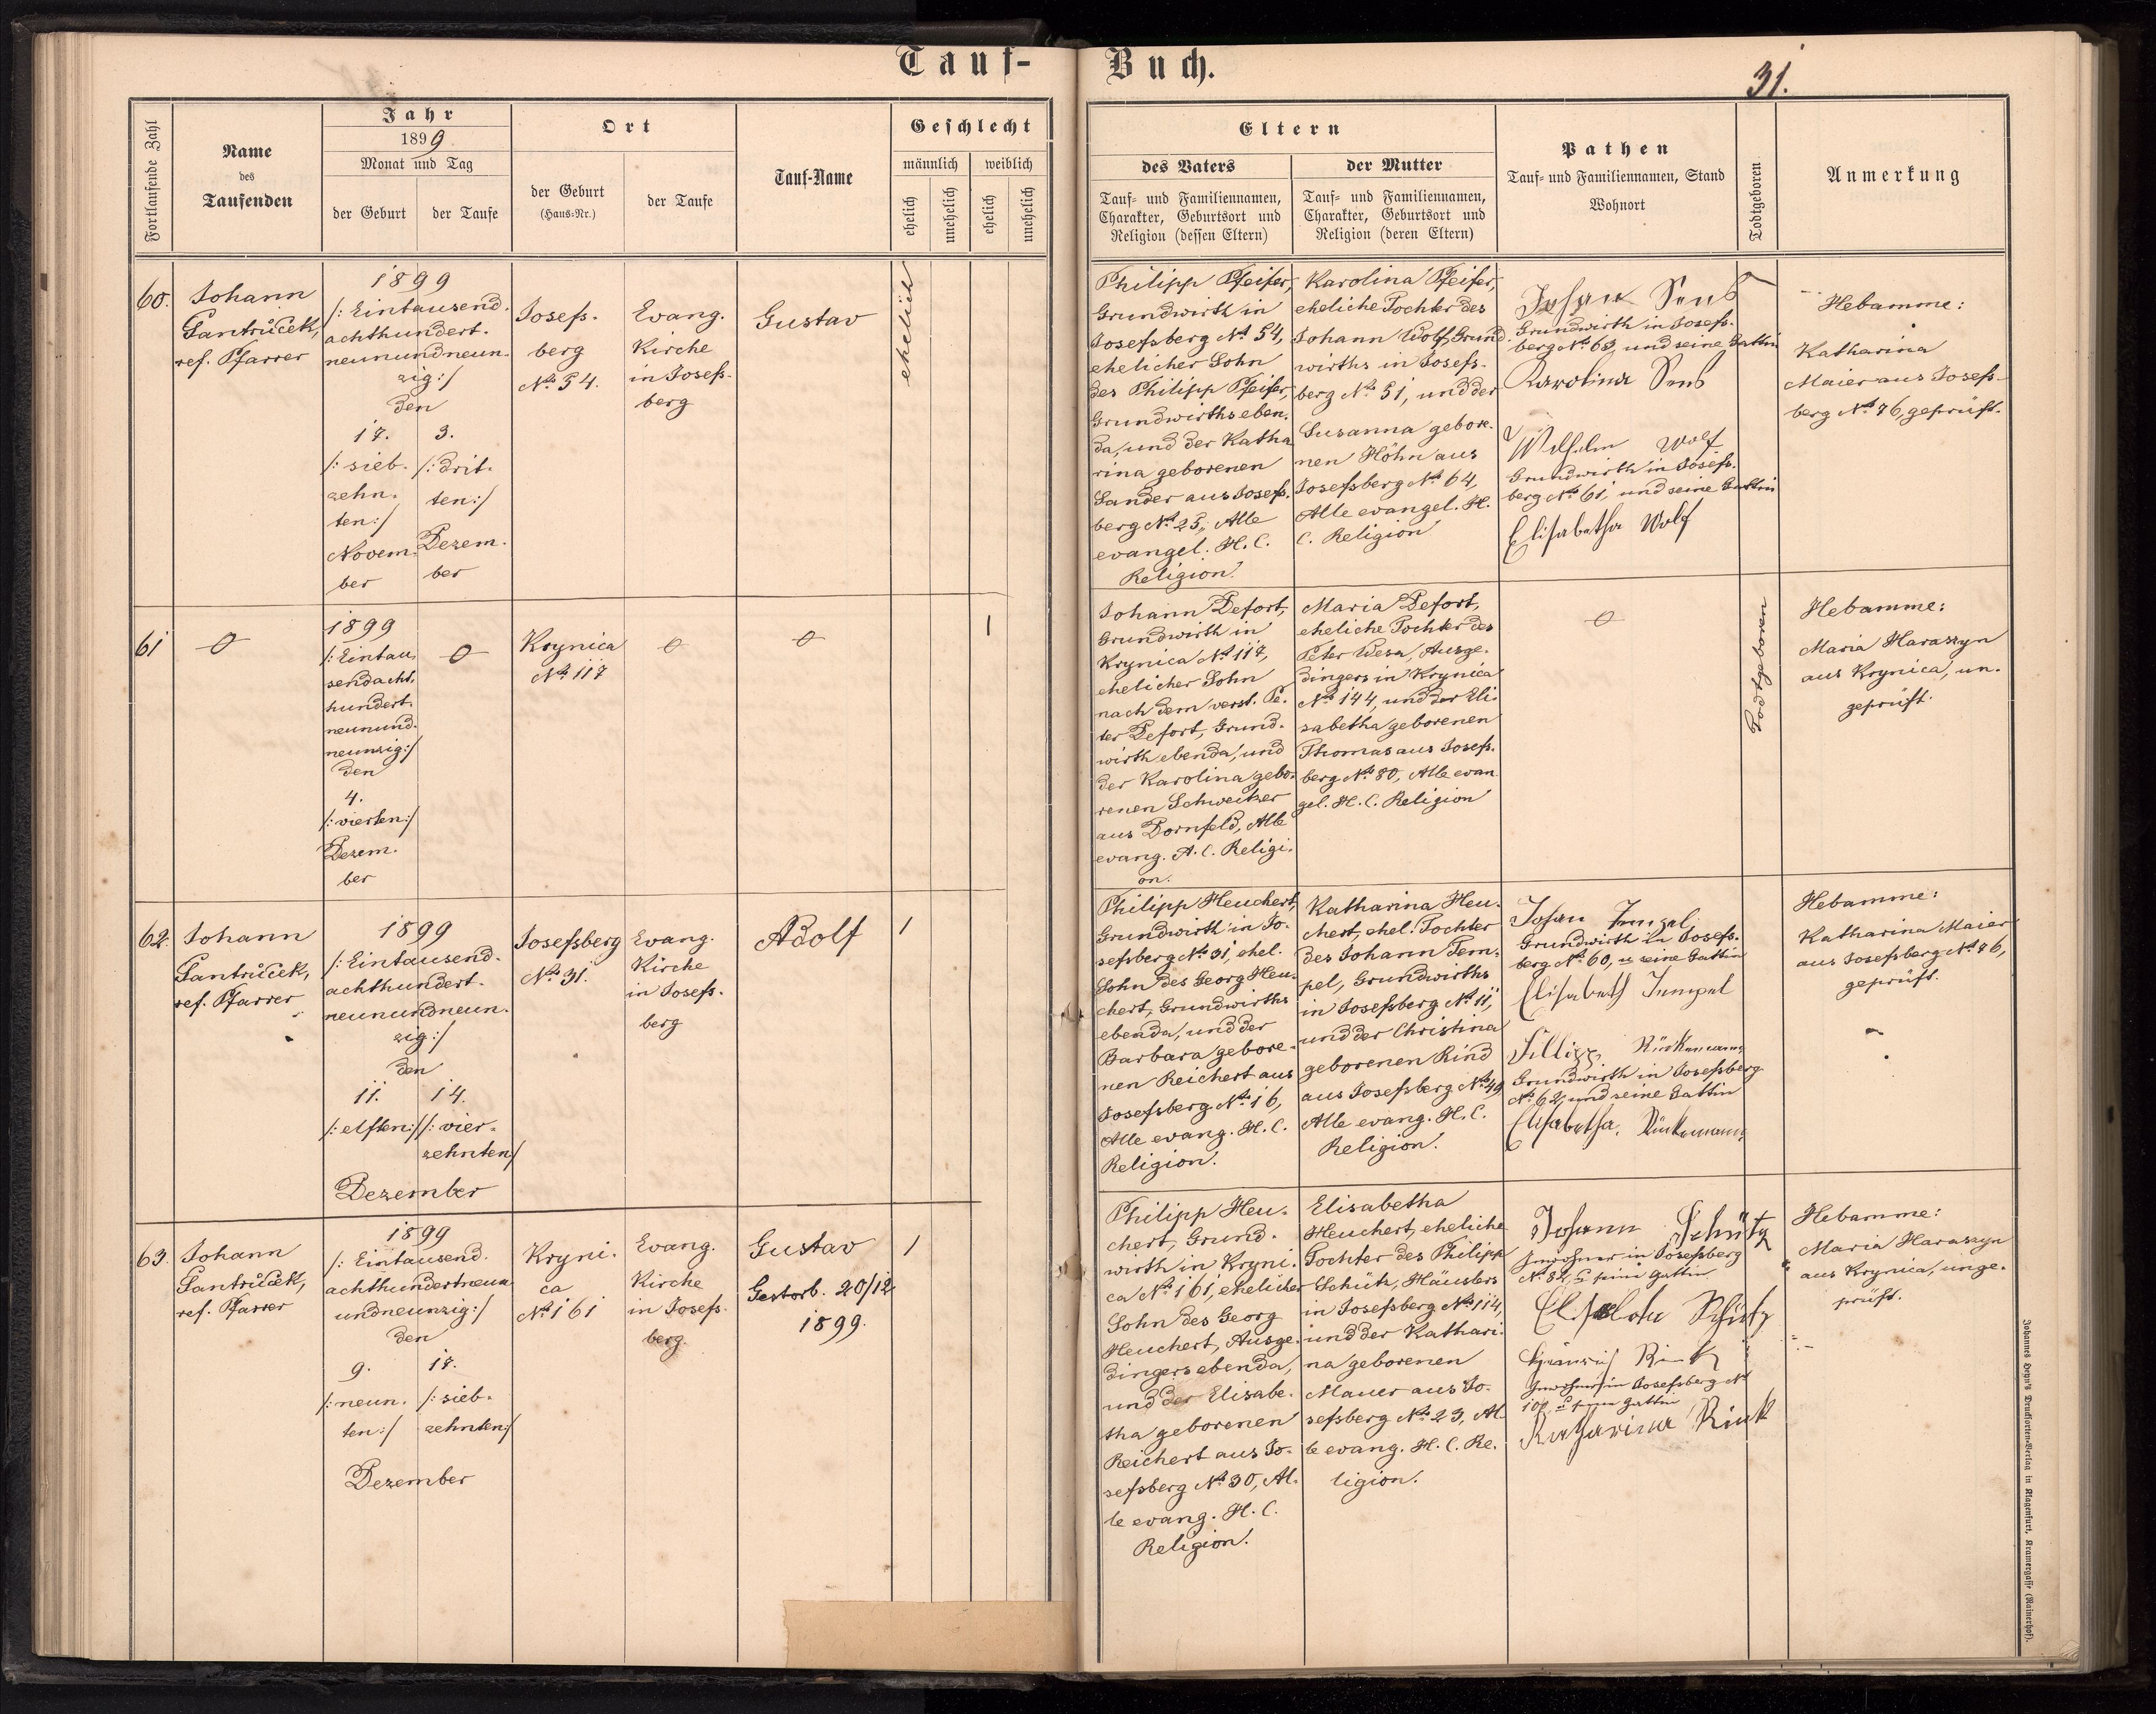 Tauf-Buch.
31.
Fortlaufende Zahl
Name
des
Taufenden
Jahr
1899
Monat und Tag
der Geburt
der Taufe
Ort
der Geburt
(Haus-Nr.)
der Taufe
Tauf-Name
Geschlecht
männlich
weiblich
ehelich
unehelich
ehelich
unehelich
Eltern
des Vaters
Tauf- und Familiennamen,
Charakter, Geburtsort und
Religion (dessen Eltern)
der Mutter
Tauf- und Familiennamen,
Charakter, Geburtsort und
Religion (deren Eltern)
Pathen
Tauf- und Familiennamen, Stand
Wohnort
Todtgeboren
Anmerkung
60.
Johann
Jantrůček,
ref. Pfarrer
1899
/: Eintausend.
achthundert.
neunundneun.
zig :/
den
17.
/: sieb.
zehn.
ten :/
Novem.
ber
3.
/: drit.
ten :/
Dezem.
ber
Josefs.
berg
No 54.
Evang.
Kirche
in Josefs.
berg
Gustav
ehelich
Philipp Pfeifer,
Grundwirth in
Josefsberg No 54,
ehelicher Sohn
des Philipp Pfeifer,
Grundwirths eben.
da, und der Katha
rina geborenen
Sander aus Josefs.
berg No 25, Alle
evangel. H. C.
Religion.
Karolina Pfeifer,
eheliche Tochter des
Johann Wolf, Grund.
wirths in Josefs.
berg No 51, und der
Susanna gebore.
nen Höhn aus
Josefsberg No 64,
Alle evangel. H.
C. Religion
Johann Sens
Grundwirth in Josefs.
berg No 63, und seine Gattin
Karolina Sens
Wilhelm Wolf
Grundwirth in Josefs.
berg No 61, und seine Gattin
Elisabetha Wolf
Hebamme:
Katharina
Maier aus Josefs
berg No 76, geprüft.
61
0
1899
/: Eintau.
sendacht.
hundert.
neunund.
neunzig :/
den
4.
/: vierten :/
Dezem.
ber
0
Krynica
No 117
0
0
1
Johann Defort,
Grundwirth in
Krynica No 117,
ehelicher Sohn
nach dem verst. Pe.
ter Defort, Grund.
wirth ebenda, und
der Karolina gebo.
renen Schweitzer
aus Dornfeld, Alle
evang. A. C. Religi.
on.
Maria Defort,
eheliche Tochter des
Peter Wesa, Ausge.
dingers in Krynica
No 144, und der Eli.
sabetha geborenen
Thomas aus Josefs.
berg No 80, Alle evan.
gel. H. C. Religion
0
Todtgeboren
Hebamme:
Maria Haraszyn
aus Krynica, un.
geprüft.
62.
Johann
Jantrůček,
ref. Pfarrer
1899
/: Eintausend.
achthundert.
neunundneun.
zig :/
den
11.
/: elften :/
14.
/: vier.
zehnten :/
Dezember
Josefsberg
No 31.
Evang.
Kirche
in Josefs.
berg
Adolf
1
Philipp Heuchert,
Grundwirth in Jo.
sefsberg No 31, ehel.
Sohn des Georg Heu.
chert, Grundwirths
ebenda, und der
Barbara gebore.
nen Reichert aus
Josefsberg No 16,
Alle evang. H. C.
Religion.
Katharina Heu.
chert, ehel. Tochter
des Johann Tem.
pel, Grundwirths
in Josefsberg No 11,
und der Christina
geborenen Rind
aus Josefsberg No 49
Alle evang. H. C.
Religion.
Johan Tempel,
Grundwirth in Josefs.
berg No 60, u seine Gattin
Elisabeth Tempel
Fillipp Rückemann,
Grundwirth in Josefsberg
No 62, und seine Gattin
Elisabetha Rückemann
Hebamme:
Katharina Maier
aus Josefsberg No 76,
geprüft.
63.
Johann
Jantrůček,
ref. Pfarrer
1899
/: Eintausend.
achthundertneun
undneunzig :/
den
9.
/: neun.
ten :/
17.
/: sieb.
zehnten :/
Dezember
Kryni.
ca
No 161
Evang.
Kirche
in Josefs.
berg.
Gustav
Gestorb. 20/12
1899.
1
Philipp Heu.
chert, Grund.
wirth in Kryni.
ca No 161, ehelicher
Sohn des Georg
Heuchert, Ausge.
dingers ebenda,
und der Elisabe.
tha geborenen
Reichert aus Jo.
sefsberg No 30, Al.
le evang. H. C.
Religion.
Elisabetha
Heuchert, eheliche
Tochter des Philipp
Schütz, Häuslers
in Josefsberg No 114,
und der Kathari.
na geborenen
Mauer aus Jo.
sefsberg No 23, Al.
le evang. H. C. Re.
ligion.
Johann Schütz
Inwohner in Josefsberg
No 82, u seine Gattin
Schütz
Heinrich Rink
Inwohner in Josefsberg No
u seine Gattin
Katharina Rink
Hebamme:
Maria Haraszyn
aus Krynica, unge.
prüft.
Johannes Heyn's Drucksorten-Verlag in Klagenfurt, Kramergasse (Rainerhof).